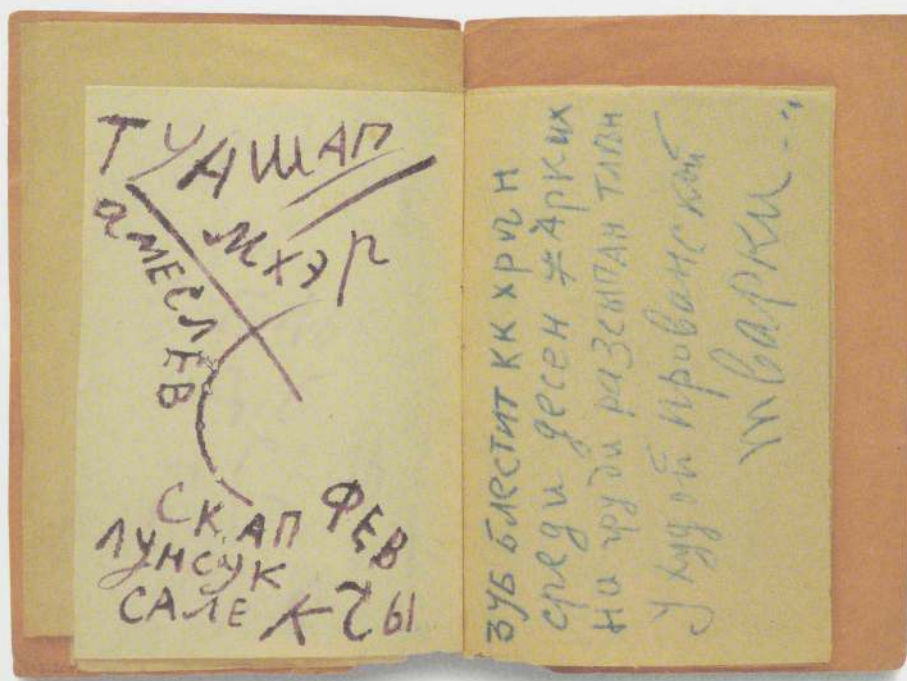 ТУНШАП
МХЭР
аМЕСЛЕВ
СКАП
ЛУНСУК
САЛЕ
ФЕВ
КЧЫ
ЗУБ БЛЕСТИТ КК ХРУ Н
среди десен жАРких
На груди разсыпАН
У худой прованской
тварки